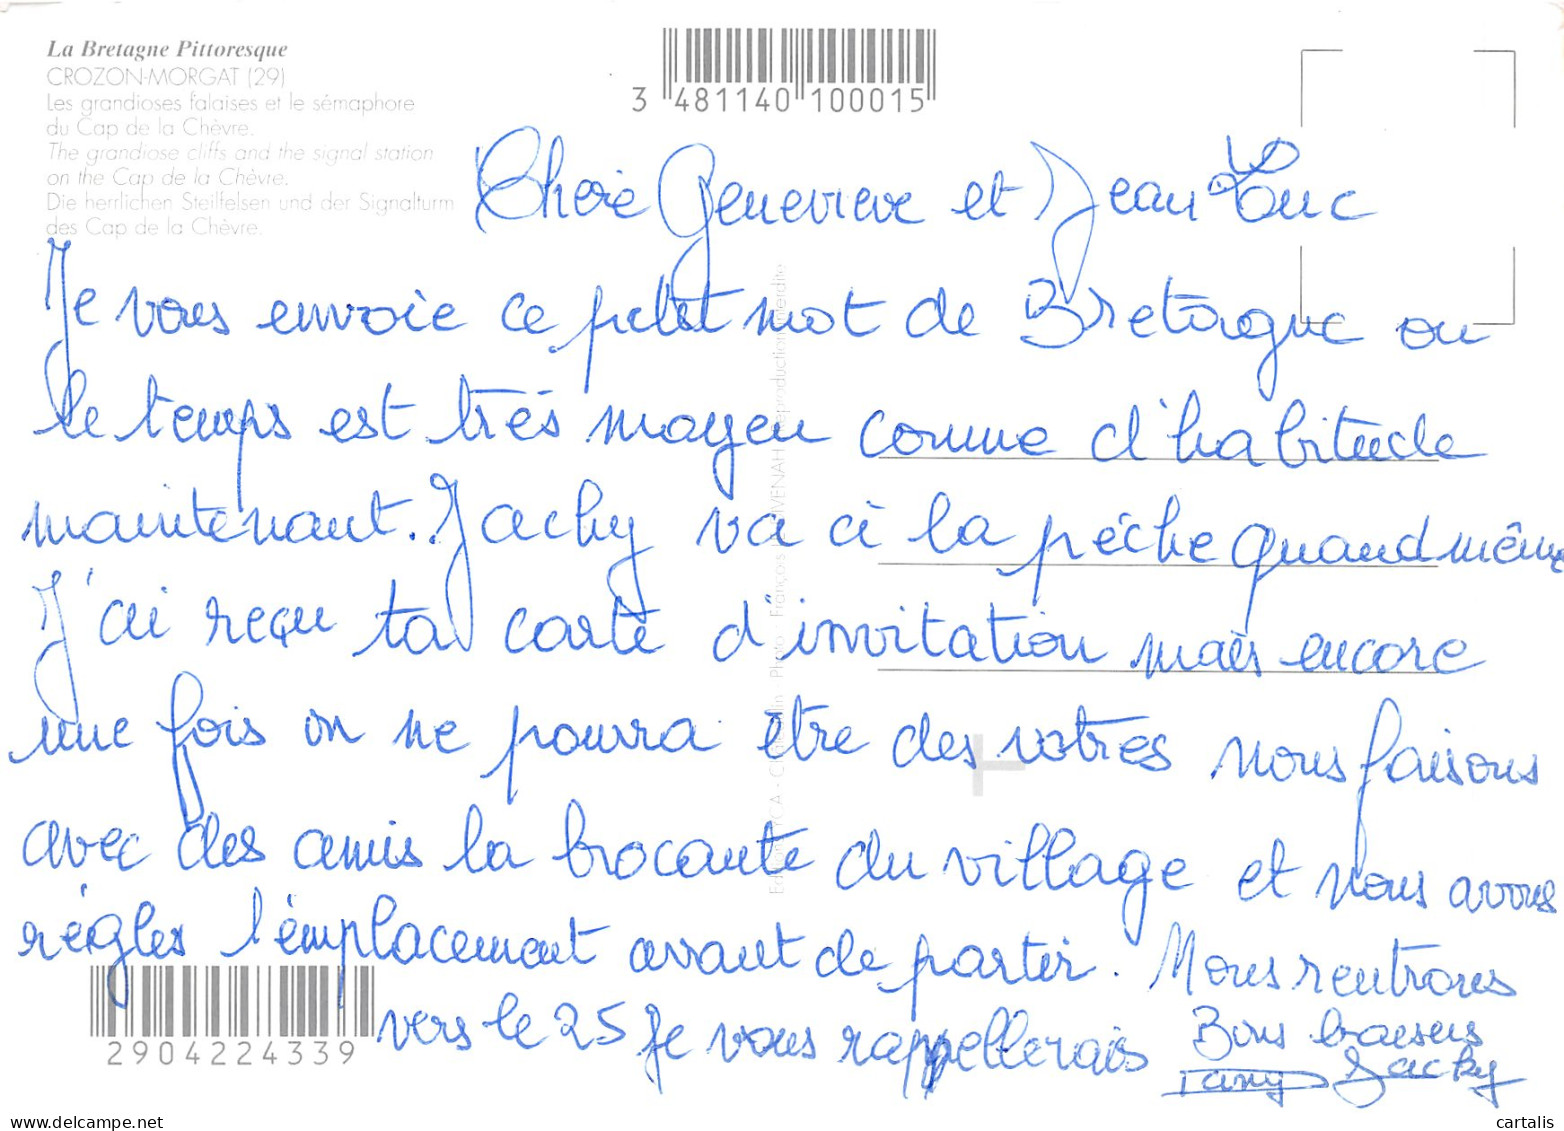 La Bretagne Pittoresque
CROZON-MORGAT (29)
Les grandioses falaises et le sémaphore
du Cap de la Chèvre.
The grandiose cliffs and the signal station
on the Cap de la Chèvre.
Die herrlichen Steilfelsen und der Signalturm
des Cap de la Chèvre.
3 481140 100015
Chere Genevieve et Jean Luc
Je vous envoie ce petit mot de Bretagne ou
le temps est très moyen comme d'habitude
maintenant. Jacky va à la pêche quand même
J'ai reçu ta carte d'invitation mais encore
une fois on ne pourra être des votres nous faisons
avec des amis la brocante du village et nous avons
réglés l'emplacement avant de partir. Nous rentrons
vers le 25 je vous rappellerais Bons baisers
Tany Jacky
2904224339
Photo : François
reproduction interdite
www.delcampe.net
cartalis